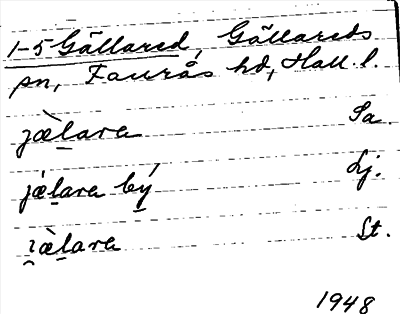 1-5 Gällared, Gällareds
sn, Faurås hd, Hall. l.
jæ̀l̠ara Sa.
jǽl̠ara bý̠ Lj.
ʒæ̀l̠ara St.
1948